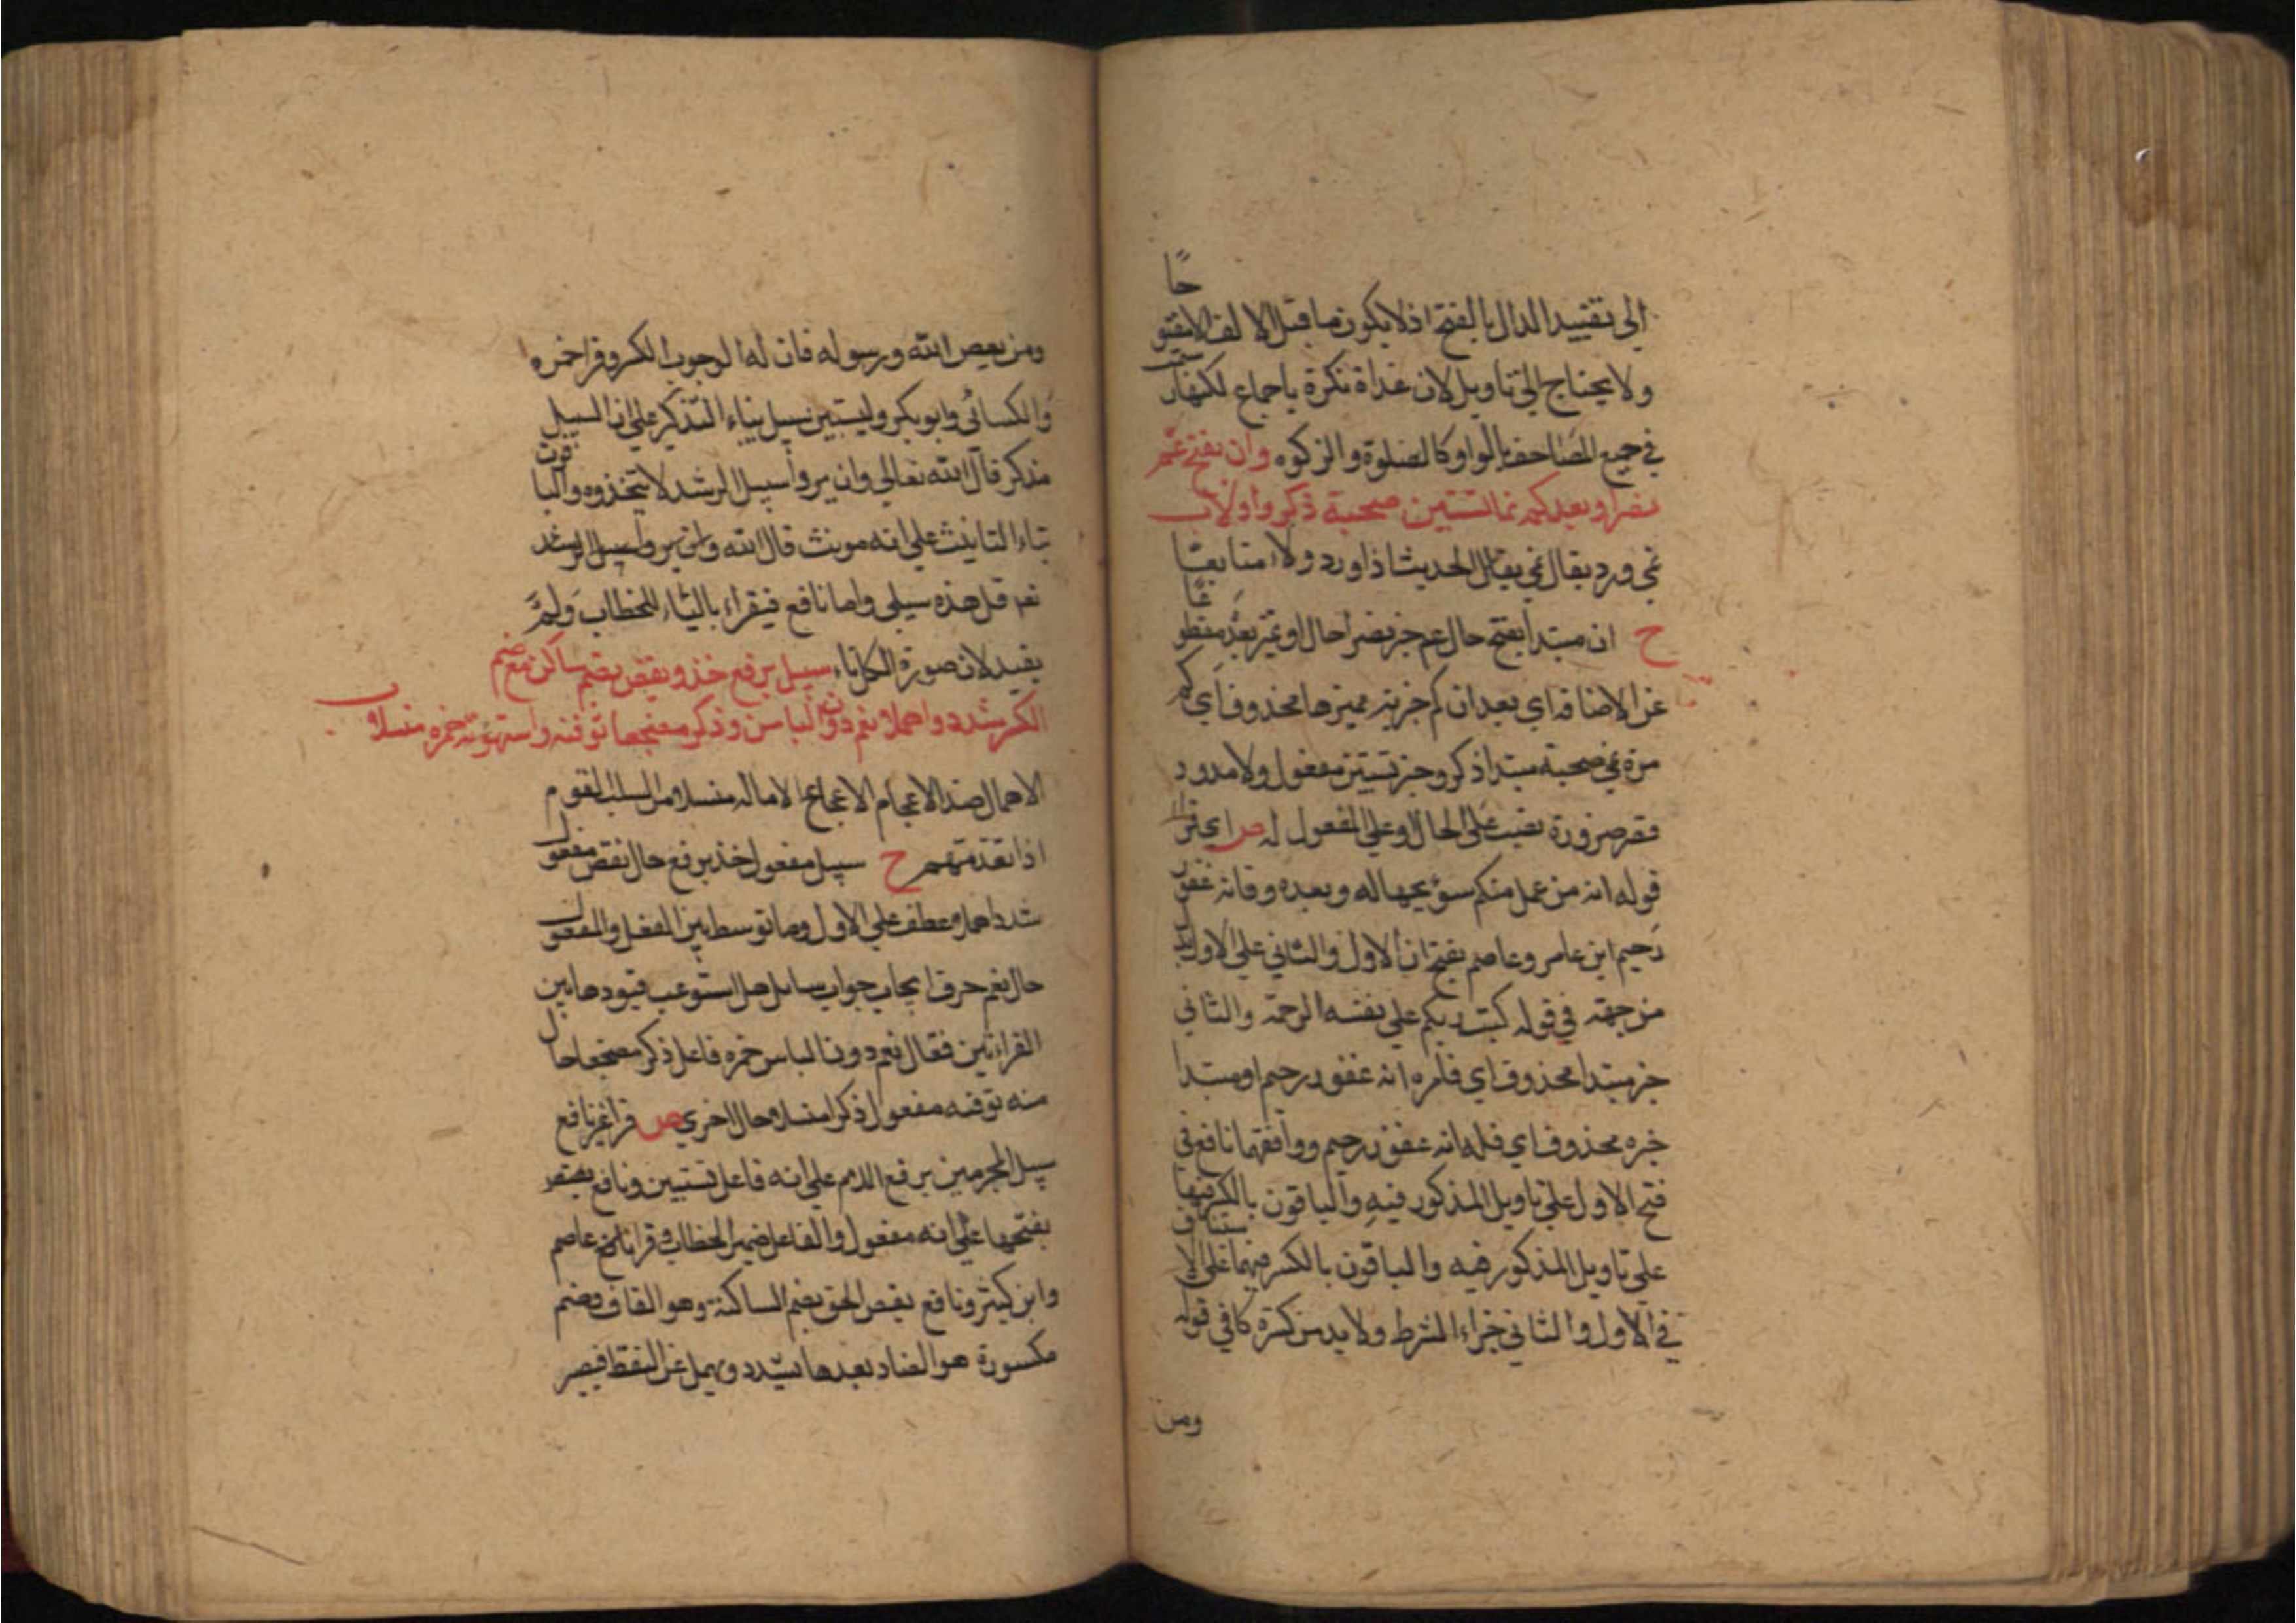 الى تقييد الدال بالفتح اذ لا يكون ما قبل الالف الا مفتوحًا
ولا يحتاج الى تاويل لان غداة نكرة باجماع لكنها كتبت
في جميع المصاحف بالواو كالصلوة والزكوه وان بفتح عم
نصرا وبعد كم نما تستبين صحبة ذكروا ولا
نمي ورد يقال نمي يقال الحديث اذا ورد ولاء متابعة
ح ان مبتدا بفتح حال عم خبر نصرا حال او تميز بعد مقطوعًا
عن الاضافه اي بعد ان كم خبريه مميزها محذوف اي كم
مرة نمي صحبة مبتدا ذكروا خبر تستبين مفعول ولا ممدود
قصر ضرورة نصب على الحال او على المفعول له ص اي قرا
قوله انه من عمل منكم سوء بجهاله وبعده وفانه غفور
رحيم ابن عامر وعاصم بفتح ان الاول والثاني على الاول بدل
من جهة في قوله كتب ربكم على نفسه الرحمة والثاني
خبر مبتدا محذوف اي فامره انه غفور رحيم او مبتدا
خبره محذوف اي فله انه غفور رحيم ووافقهما نافع في
فتح الاول على تاويل المذكور فيه والباقون بالكسر فيها
على تاويل المذكور فيه والباقون بالكسر فيهما على الاستيناف
في الاول والثاني جزاء الشرط ولا بد من كسره كما في قوله
ومن
ومن يعص الله ورسوله فان له لوجوب الكسر وقرا حمزه
والكسائى وابو بكر وليستبين سبيل بياء التذكير على ان السبيل
مذكر قال الله تعالى وان يروا سبيل الرشد لا يتخذوه والباقون
بتاء التانيث على انه مونث قال الله وان يروا سبيل الرشد
نعم قل هذه سبيلي واما نافع فيقراء بالتاء للخطاب ولم
يقيد لان صورة الكل تاء سبيل برفع خذ ويقض بضم ساكن مع ضم
الكسر شدد واهملا نعم دون الباس وذكر مضجعا توفته واستهوته حمزه منسلا
الاهمال ضد الاعجام الاضجاع الاماله منسلا من انسلت القوم
اذا تقدمتهم ح سبيل مفعول خذ برفع حال يقض مفعول
شدد اهملا عطف على الاول وما توسط بين الفعل والمفعول
حال نعم حرف ايجاب جواب سايل هل استوعب قيود هاتين
القراءتين فقال نعم دون الباس حمزه فاعل ذكر مضجعا حال
منه توفته مفعول ذكر منسلا حال اخرى ص قرا غير نافع
سبيل المجرمين برفع اللام على انه فاعل تستبين ونافع بنصب
بفتحها على انه مفعول والفاعل ضمير الخطاب وقرا عاصم
وابن كثير ونافع يقص الحق بضم الساكنة وهو القاف وضم
مكسورة هو الضاد بعدها تشدد ويهمل عن النقط فيصير